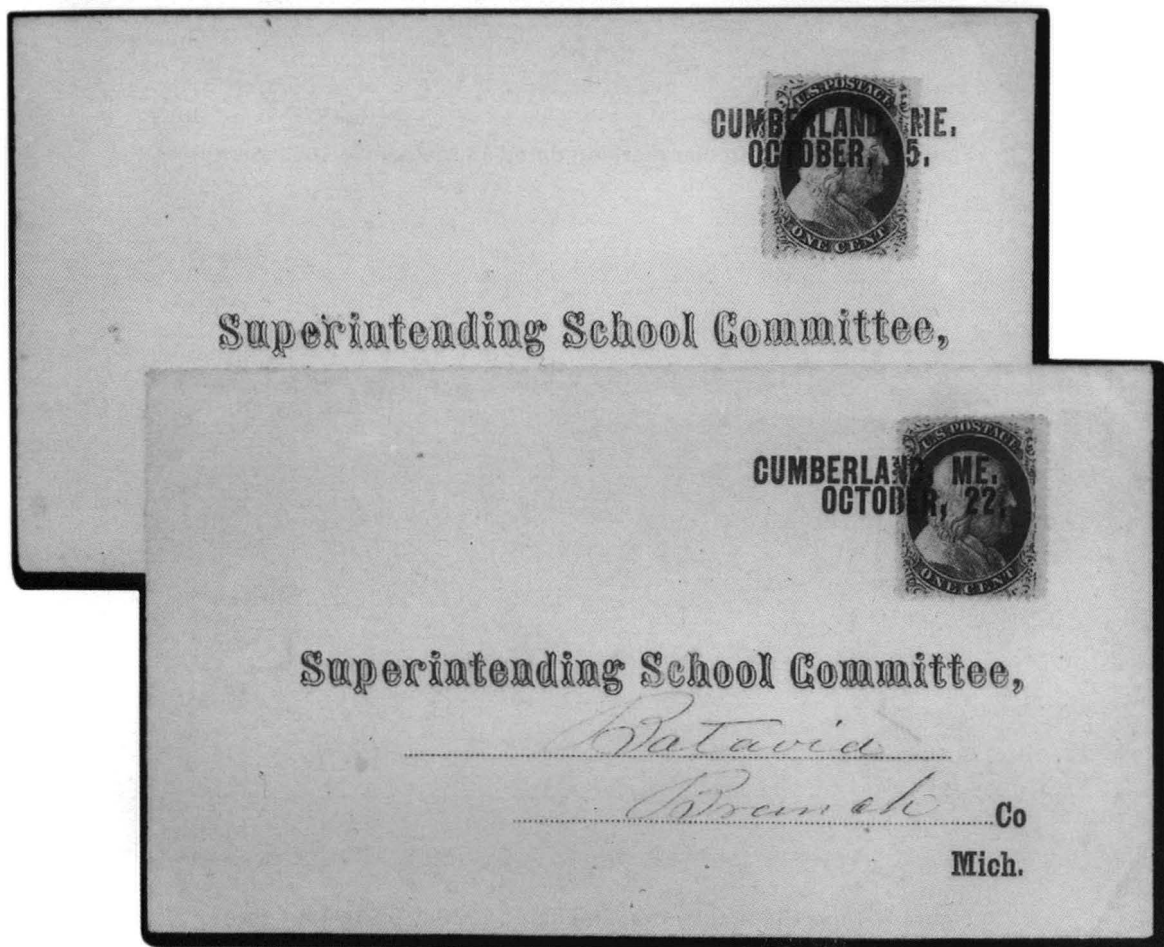 U.S. POSTAGE
CUMBERLAND, ME.
OCTOBER, 5.
ONE CENT
Superintending School Committee,
U.S. POSTAGE
CUMBERLAND, ME.
OCTOBER, 22.
ONE CENT
Superintending School Committee,
Batavia
Branch Co
Mich.